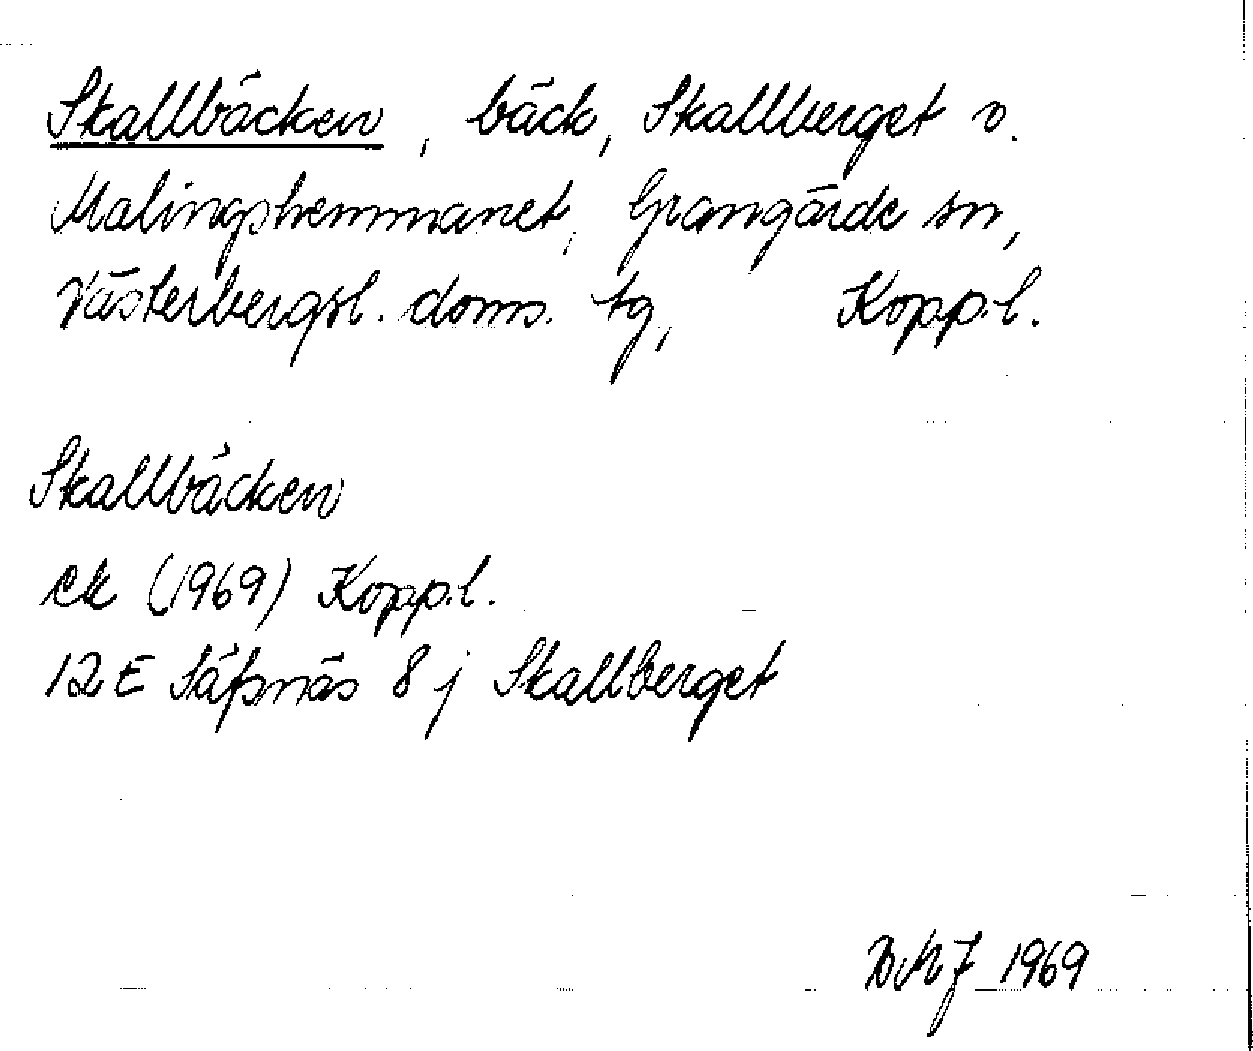 Skallbäcken, bäck, Skallberget v.
Malingshemmanet, Grangärde sn,
Västerbergsl. doms. tg, Kopp.l.
Skallbäcken
ek (1969) Kopp.l.
12E Säfsnäs 8j Skallberget
BMJ 1969